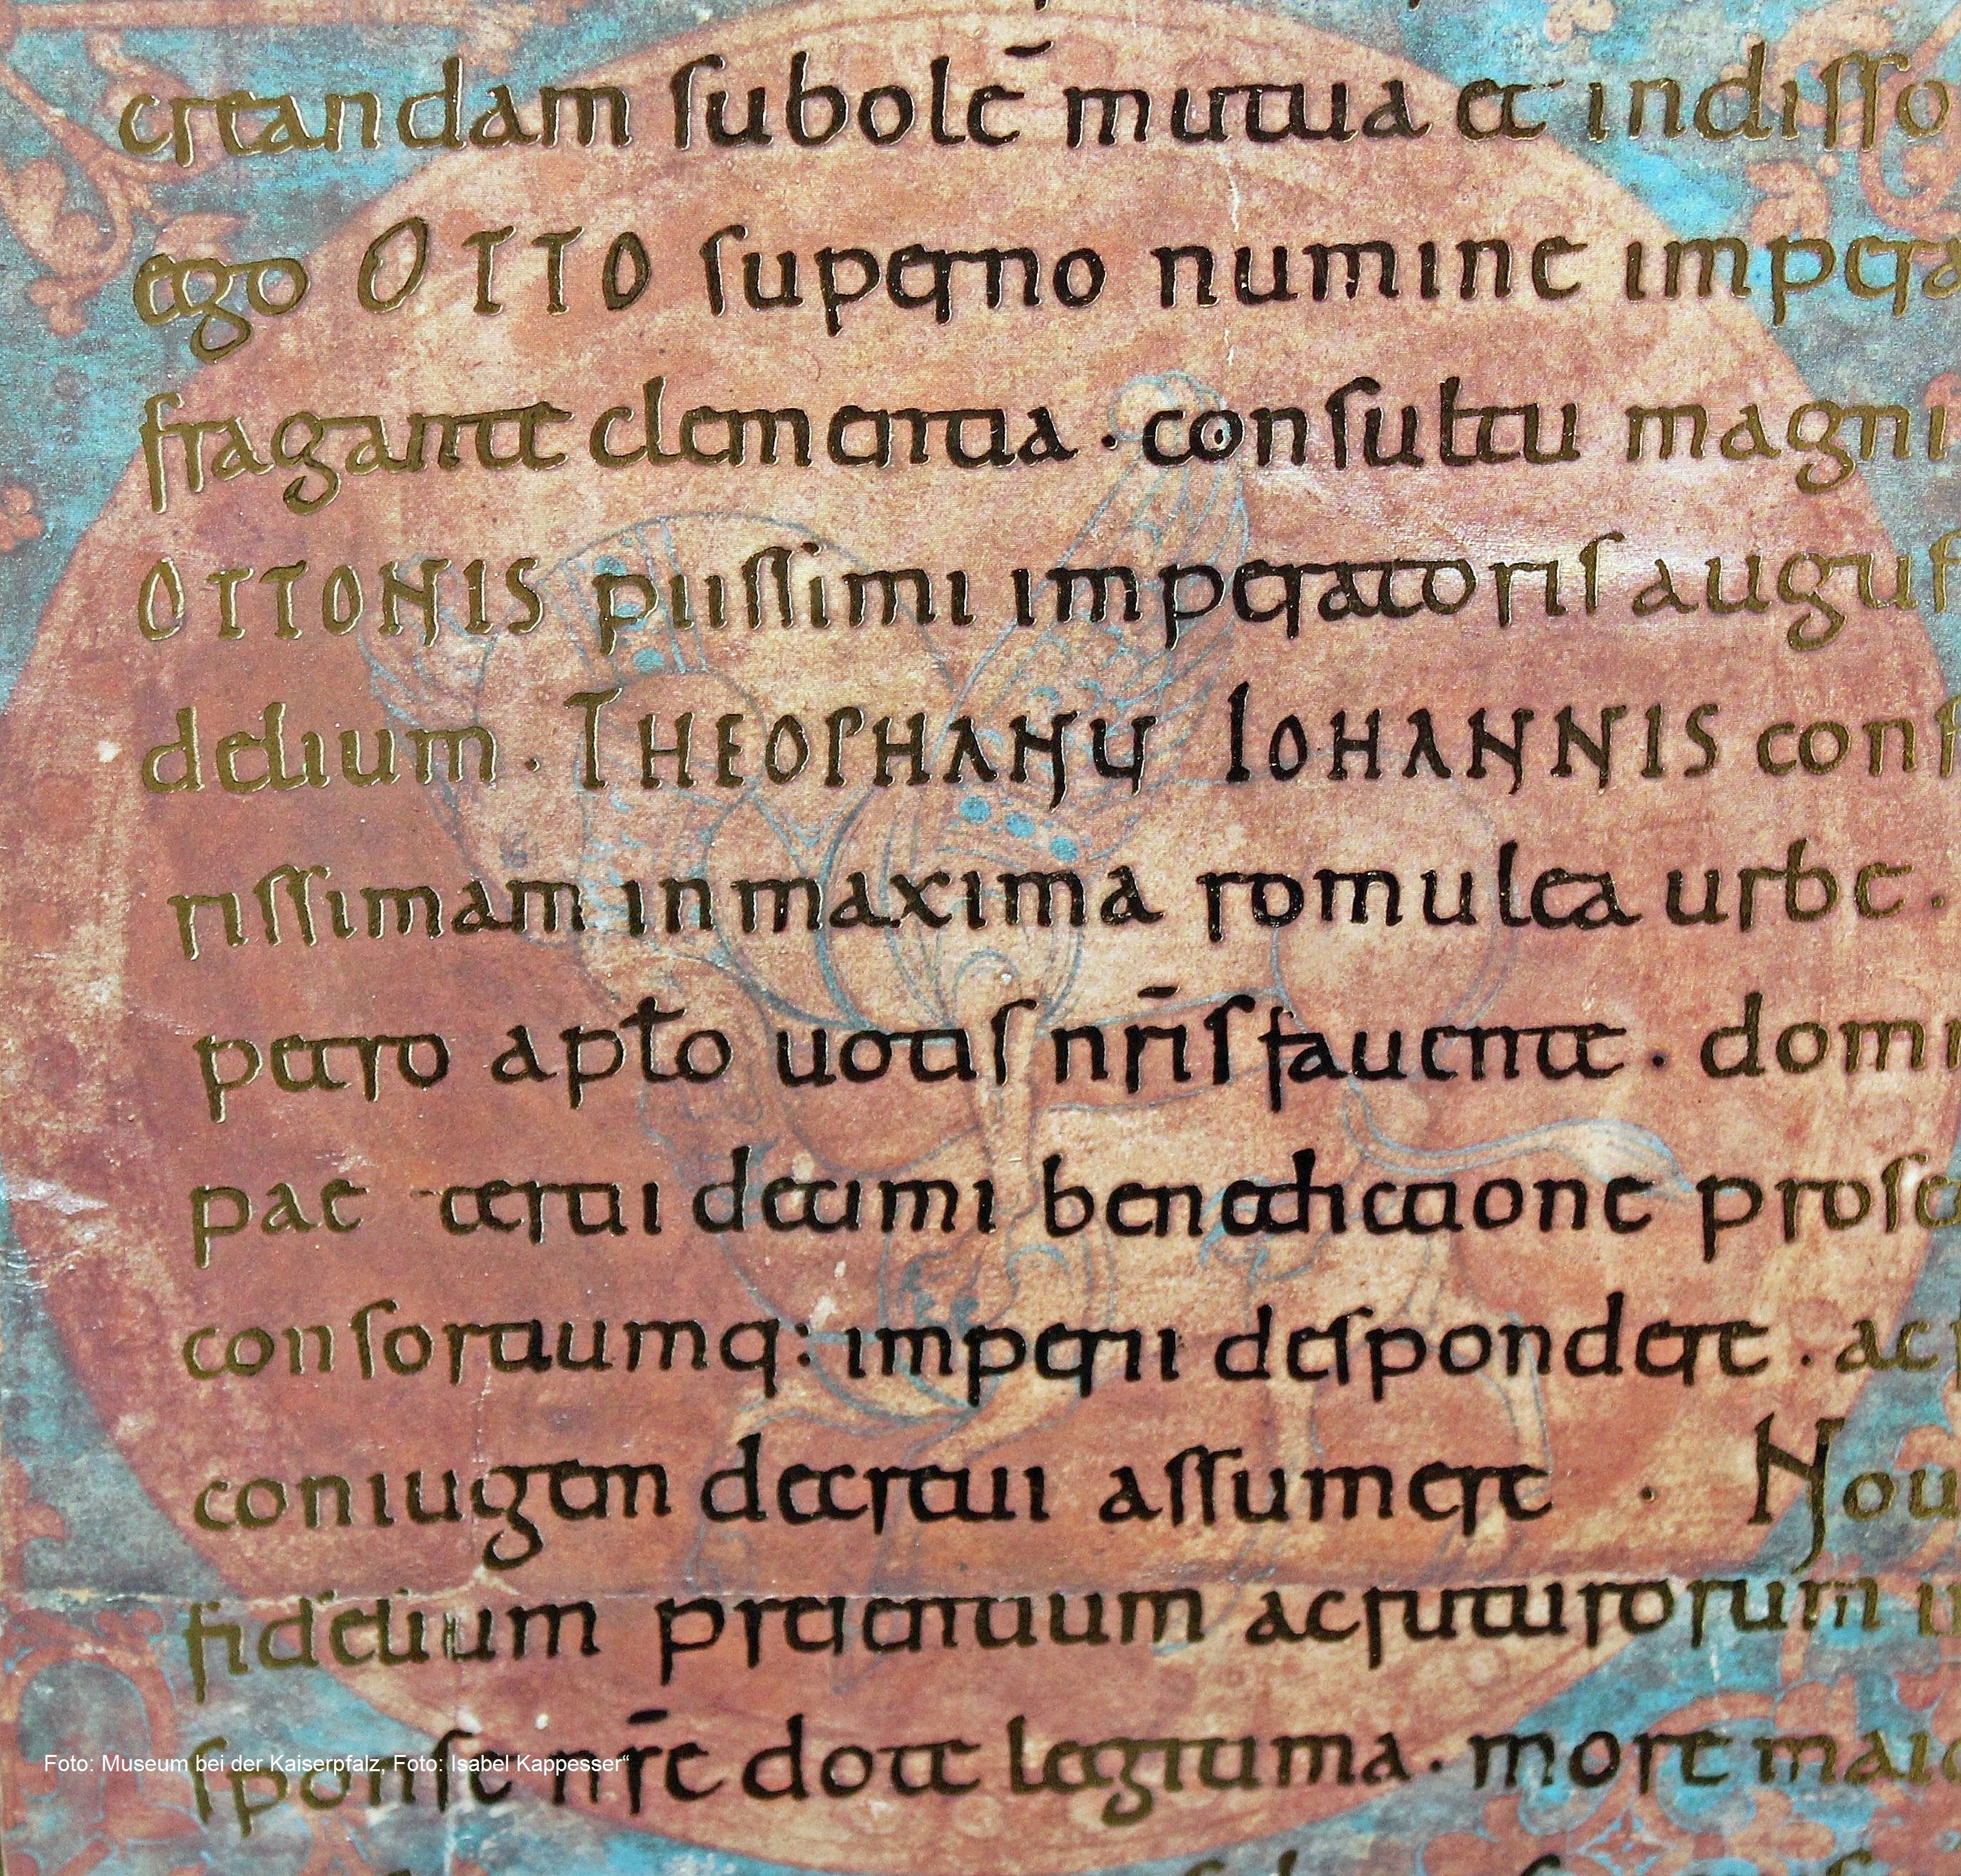 creandam ſubolē mutua et indiſſo
ego OTTO ſuperno numine impera
fragante clementia · conſultu magni
OTTONIS piiſſimi imperatoriſ auguſ
delium · THEOPHANU IOHANNIS conſ
riſſimam inmaxima romulea urbe ·
petro apto uotiſ nr̄iſ fauente · domi
pae tertii decimi benedictione proſe
conſortiumq: imperii deſpondere · ac
coniugem decreui aſſumere · Nou
fidelium preſentium acfuturorum
ſponſe nr̄e dote legitima · more maio
Foto: Museum bei der Kaiserpfalz, Foto: Isabel Kappesser“